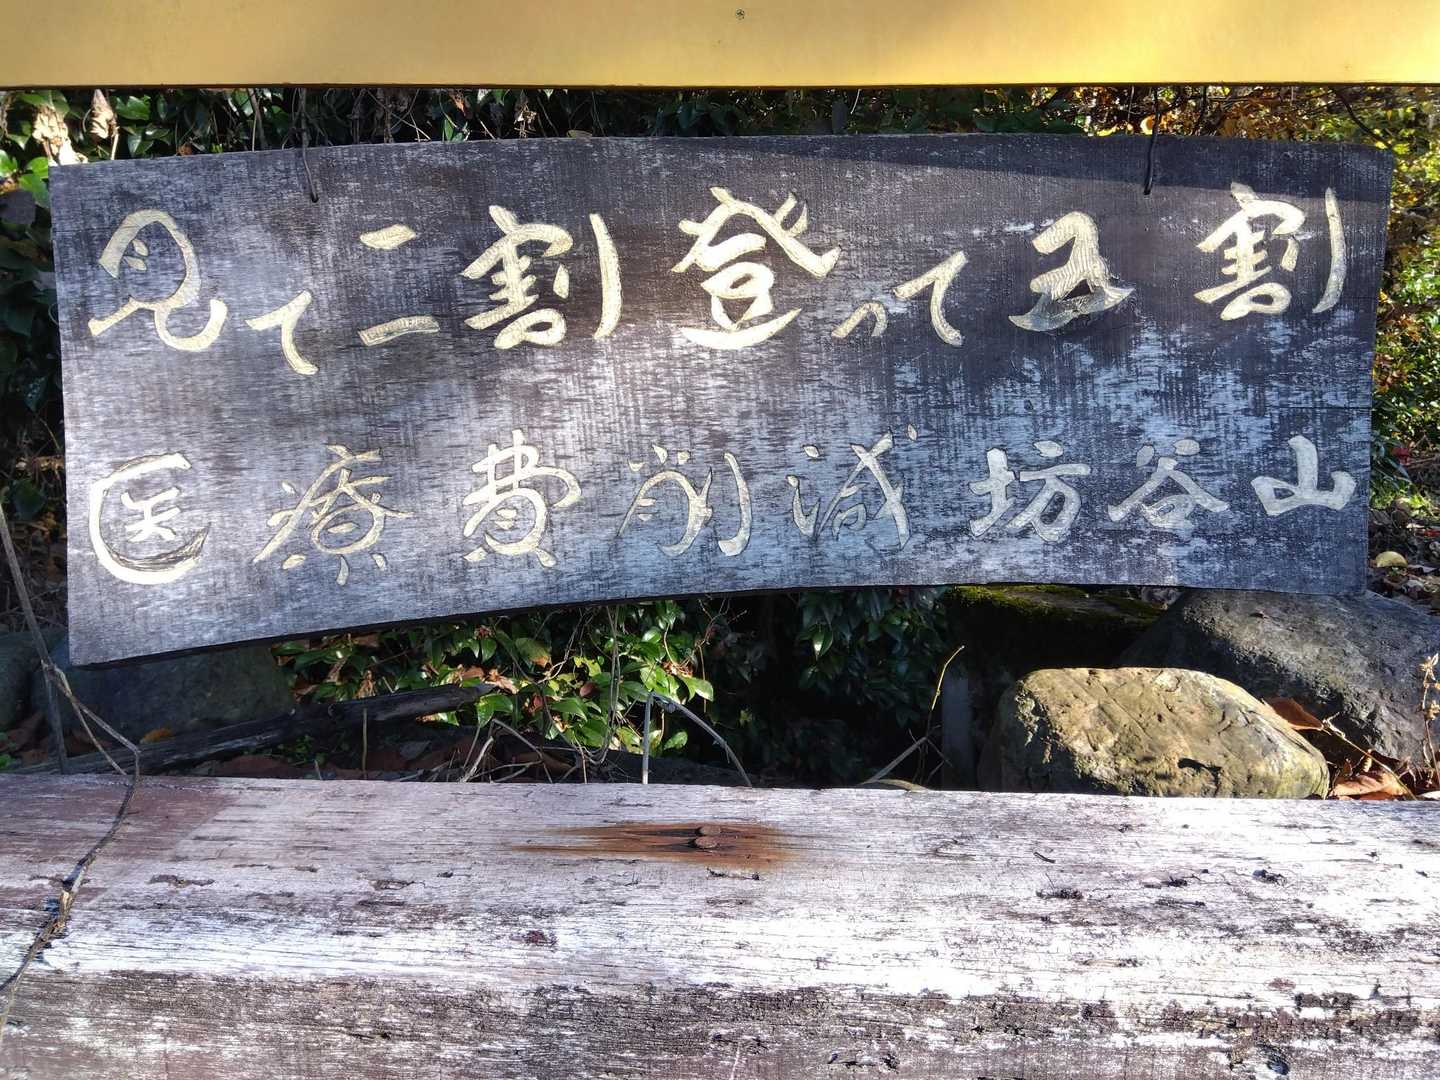 見て二割登って五割
医療費削減坊谷山